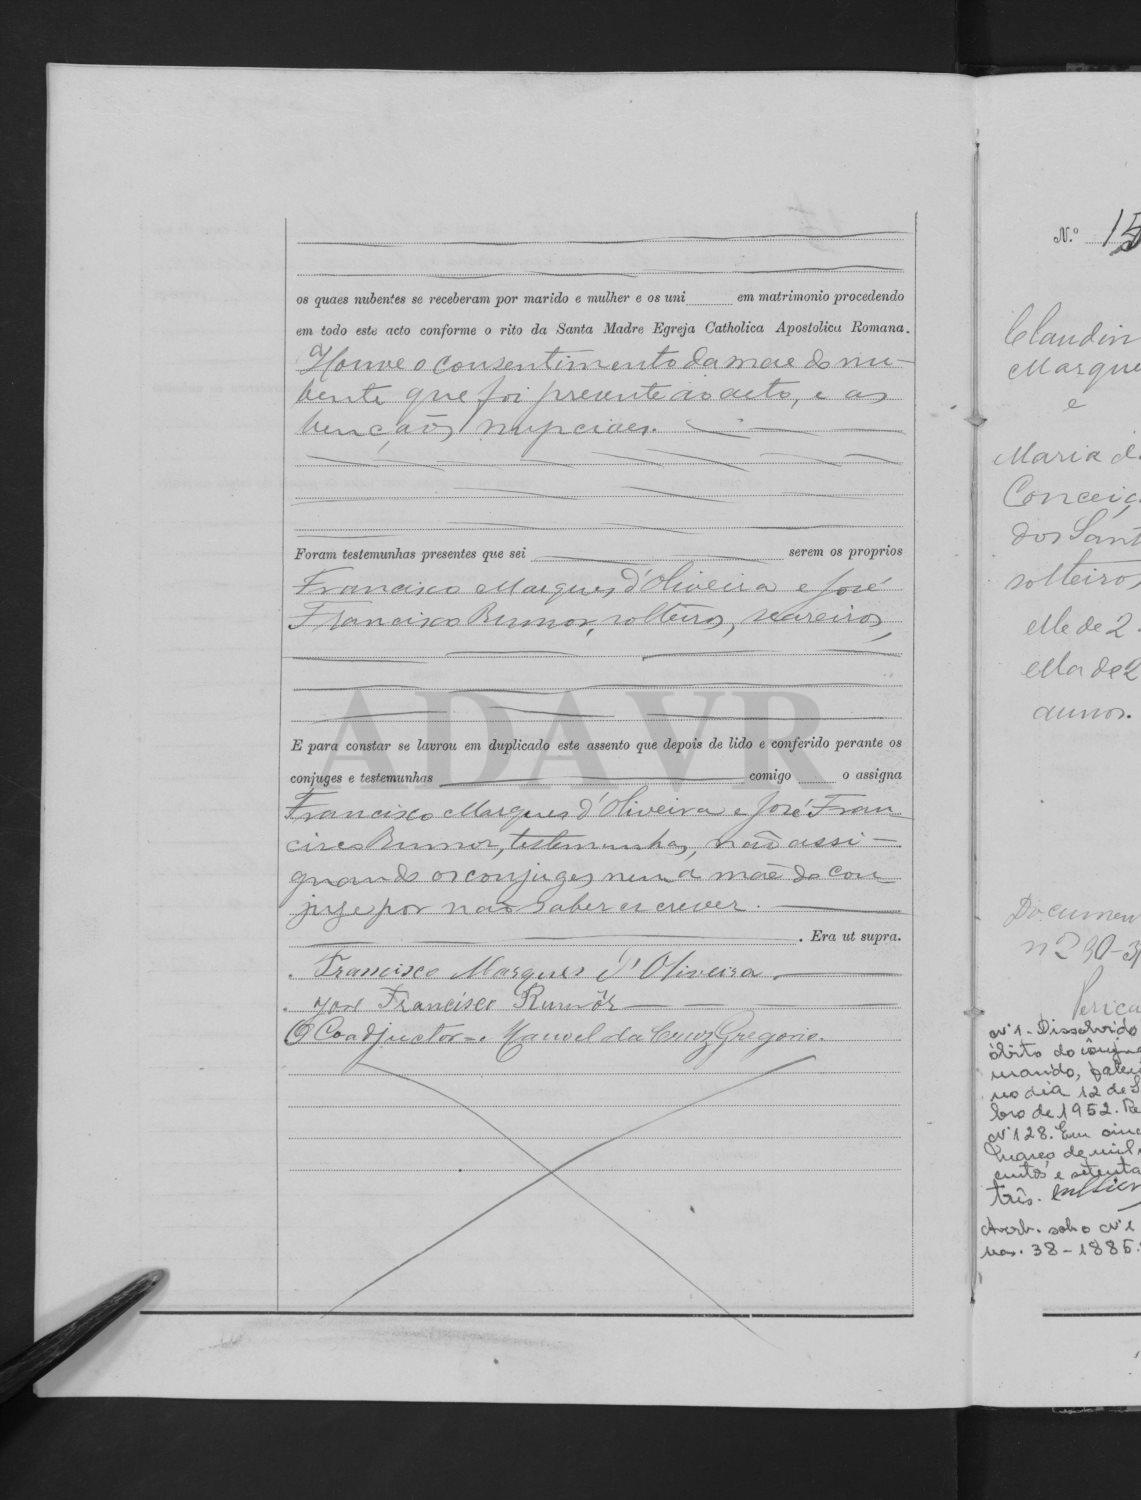 os quaes nubentes se receberam por marido e mulher e os uni em matrimonio procedendo
em todo este acto conforme o rito da Santa Madre Egreja Catholica Apostolica Romana.
Houve o consentimento da mãe do nu-
bente que foi presente ao acto, e as
bençãos nupciaes.
Foram testemunhas presentes que sei serem os proprios
Francisco Marques d'Oliveira e José
Francisco Rumor, solteiros,
ADAVR
E para constar se lavrou em duplicado este assento que depois de lido e conferido perante os
conjuges e testemunhas comigo o assigna
Francisco Marques d'Oliveira e José Fran
cisco Rumor, testemunhas, não assi-
gnando os conjuges nem a mãe do con
juge por não saber escrever.
. Era ut supra.
Francisco Marques d'Oliveira
José Francisco Rumôr
O Coadjuctor = Manoel da Cruz Gregorio.
N.º 15
Claudin
Marque
e
Maria d
Conceiç
dos Sant
solteiros
elle de 2
ella de 2
annos.
Documen
n 2 30-3
Nº 1. Dissolvido
óbito do conjuge
marido, falec
no dia 12 de S
bro de 1952.
Nº 128. Em cinc
Março de mil
centos e setenta
três.
Averb. sob o Nº 1
nas. 38-1885.